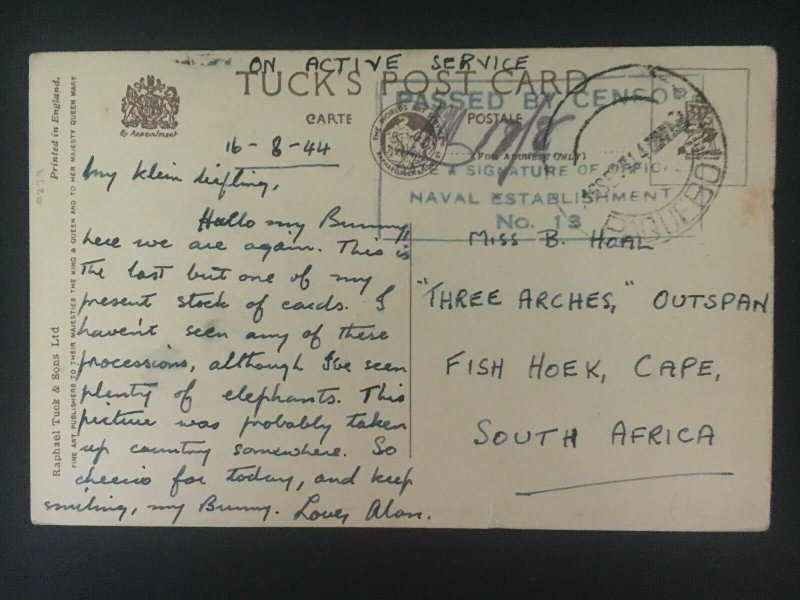 ON ACTIVE SERVICE
TUCK'S POST CARD
CARTE POSTALE
(FOR ADDRESS ONLY)
By Appointment
PASSED BY CENSOR
& SIGNATURE OF
NAVAL ESTABLISHMENT
No. 13
16-8-44
My klein liefling,
Hallo my Bunny,
here we are again. This is
the last but one of my
present stock of cards. I
haven't seen any of these
processions, although I've seen
plenty of elephants. This
picture was probably taken
up country somewhere. So
cheerio for today, and keep
smiling, my Bunny. Love, Alan.
MISS B. HOAL
"THREE ARCHES," OUTSPAN
FISH HOEK, CAPE,
SOUTH AFRICA
Printed in England.
Raphael Tuck & Sons Ltd
FINE ART PUBLISHERS TO THEIR MAJESTIES THE KING & QUEEN AND TO HER MAJESTY QUEEN MARY